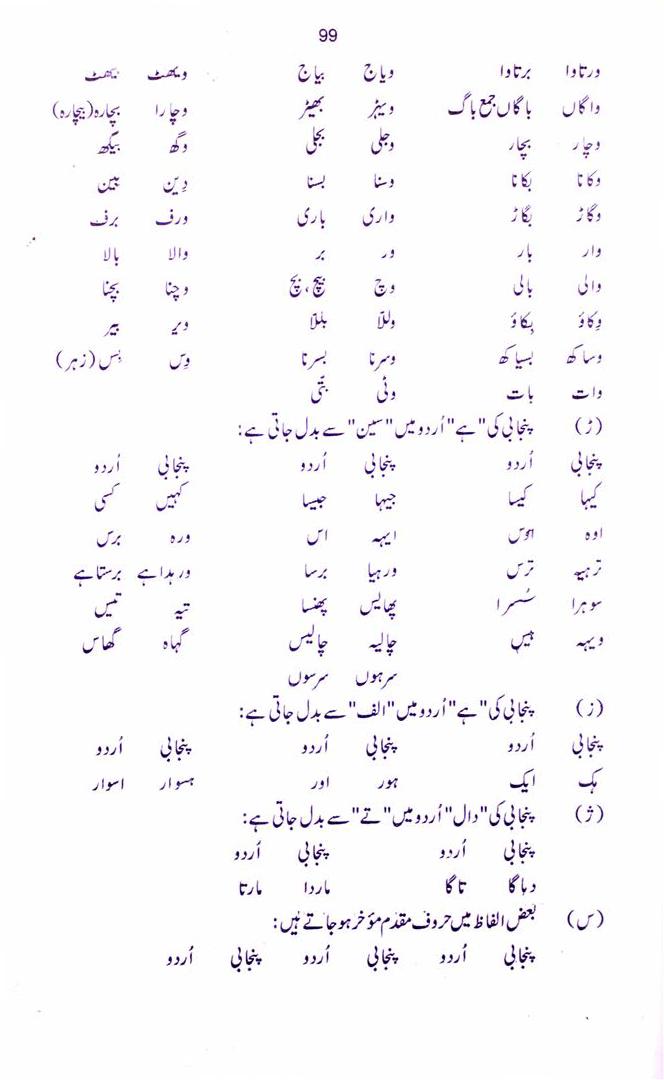 99
ورتاوا برتاوا ویاج بیاج ویھٹ بیھٹ
واگاں باگاں جمع باگ ویہڑ بھیڑ وچارا بچارہ (بیچارہ)
وچار بچار وجلی بجلی وگھ بیکھ
وکانا بکانا وسنا بسنا وِین بین
وگاڑ بگاڑ واری باری ورف برف
وار بار ور بر والا بالا
والی بالی وچ بیچ، بچ وچنا بچنا
وِکاؤ بِکاؤ وللّا بللّا ویر بیر
وساکھ بسیاکھ وسرنا بسرنا وِس بِس (زہر)
وات بات وٹی بتّی
(ڑ) پنجابی کی "ہے" اُردو میں "سین" سے بدل جاتی ہے:
پنجابی اُردو پنجابی اُردو پنجابی اُردو
کیہا کیسا جیہا جیسا کہیں کسی
اوہ اوس ایہہ اس ورہ برس
ترہیہ ترس ورہیا برسا ورہدا ہے برستا ہے
سوہرا سُسرا پھایس پھنسا تیہ تیس
ویہہ بیس چالیہ چالیس گہاہ گھاس
سرہوں سرسوں
(ز) پنجابی کی "ہے" اُردو میں "الف" سے بدل جاتی ہے:
پنجابی اُردو پنجابی اُردو پنجابی اُردو
ہک ایک ہور اور ہسوار اسوار
(ژ) پنجابی کی "دال" اُردو میں "تے" سے بدل جاتی ہے:
پنجابی اُردو پنجابی اُردو
دہاگا تاگا ماردا مارتا
(س) بعض الفاظ میں حروف مقدم مؤخر ہو جاتے ہیں:
پنجابی اُردو پنجابی اُردو پنجابی اُردو